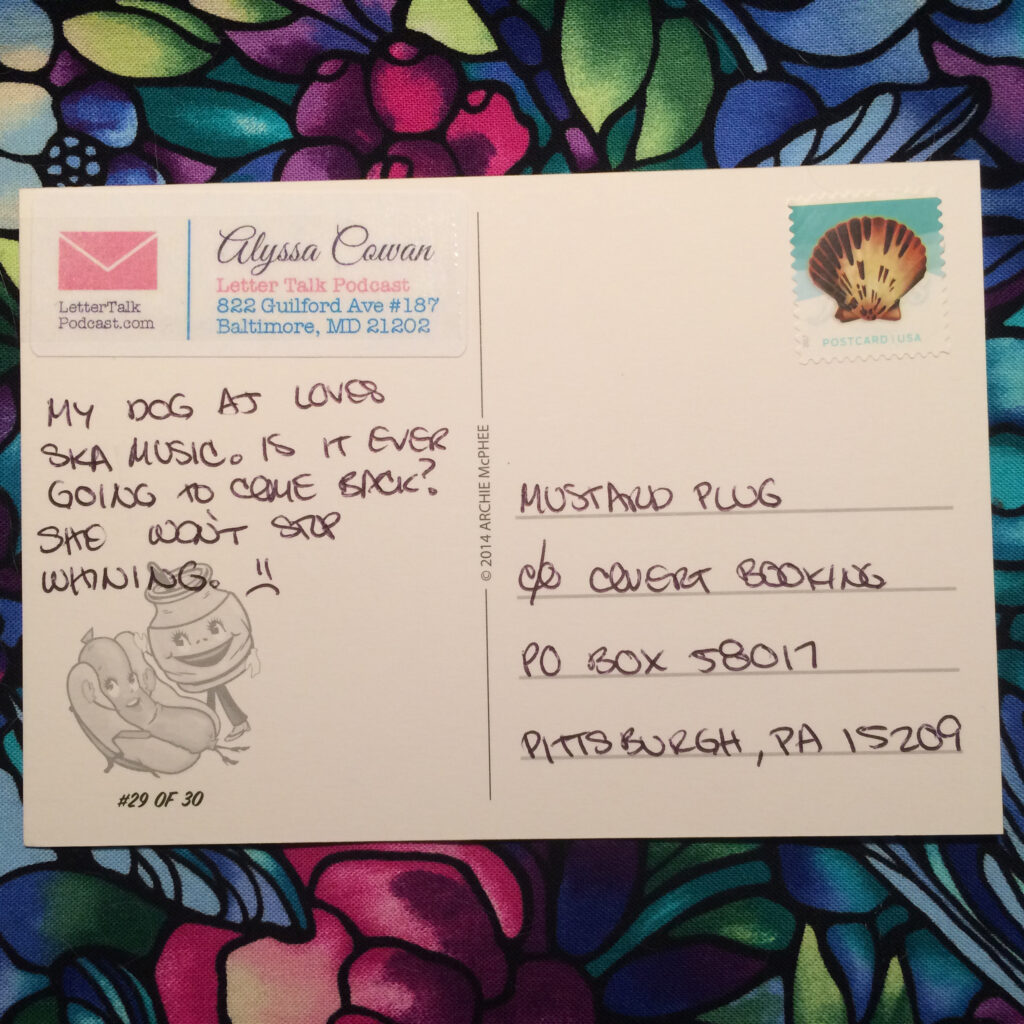 LetterTalk
Podcast.com
Alyssa Cowan
Letter Talk Podcast
822 Guilford Ave #187
Baltimore, MD 21202
MY DOG AJ LOVES
SKA MUSIC. IS IT EVER
GOING TO COME BACK?
SHE WON'T STOP
WHINING. :(
#29 OF 30
© 2014 ARCHIE McPHEE
POSTCARD | USA
MUSTARD PLUG
c/o COVERT BOOKING
PO BOX 58017
PITTSBURGH, PA 15209